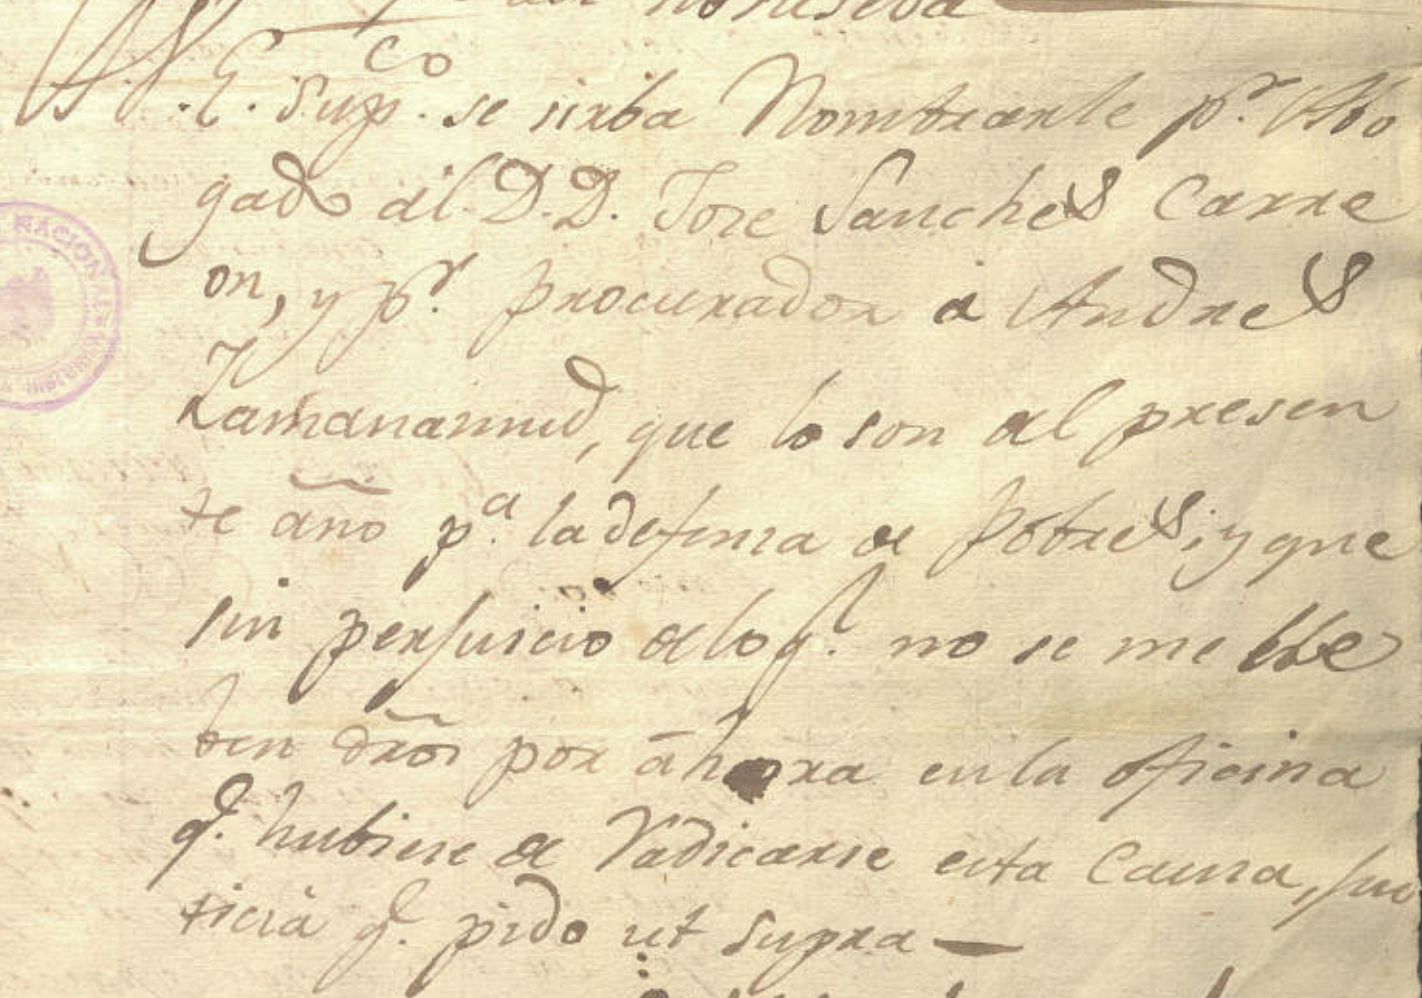 A V. E. Supco. se sirba Nombrarle pr. Abo
gado al D.D. Jose Sanches Carre
on, y pr. procurador á Andres
que lo son al presen
te año pa. la defensa de Pobres; y que
sin perjuicio de lo q.l no se me lle
ben dr̃os por ahora en la oficina
q.e hubiese de Radicarse esta Causa, Jus
ticia q.e pido ut supra —
NACIONAL